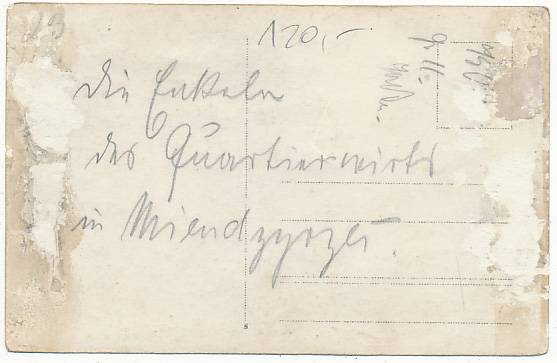 120,-
Die Enkeln
des Quartierwirts
in Miendzyrzec.
S